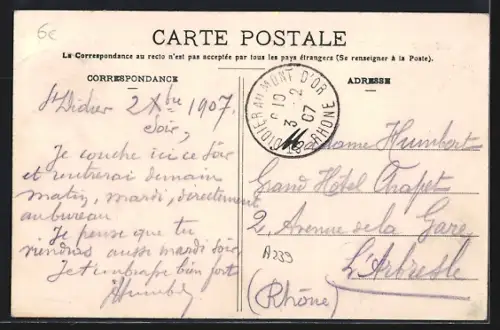 6c
CARTE POSTALE
La Correspondance au recto n'est pas acceptée par tous les pays étrangers (Se renseigner à la Poste).
CORRESPONDANCE
ADRESSE
St Didier 2 Xbre 1907.
Soir,
Je couche ici ce soir
et rentrerai demain
matin, mardi, directement
au bureau
Je pense que tu
viendras aussi mardi soir
Je t'embrasse bien fort
AHumbert
DIDIER AU MONT D'OR
RHONE
3 - 12
07
Madame Humbert
Grand Hôtel Chapet
2, Avenue de la Gare
L'Arbresle
(Rhône)
A239